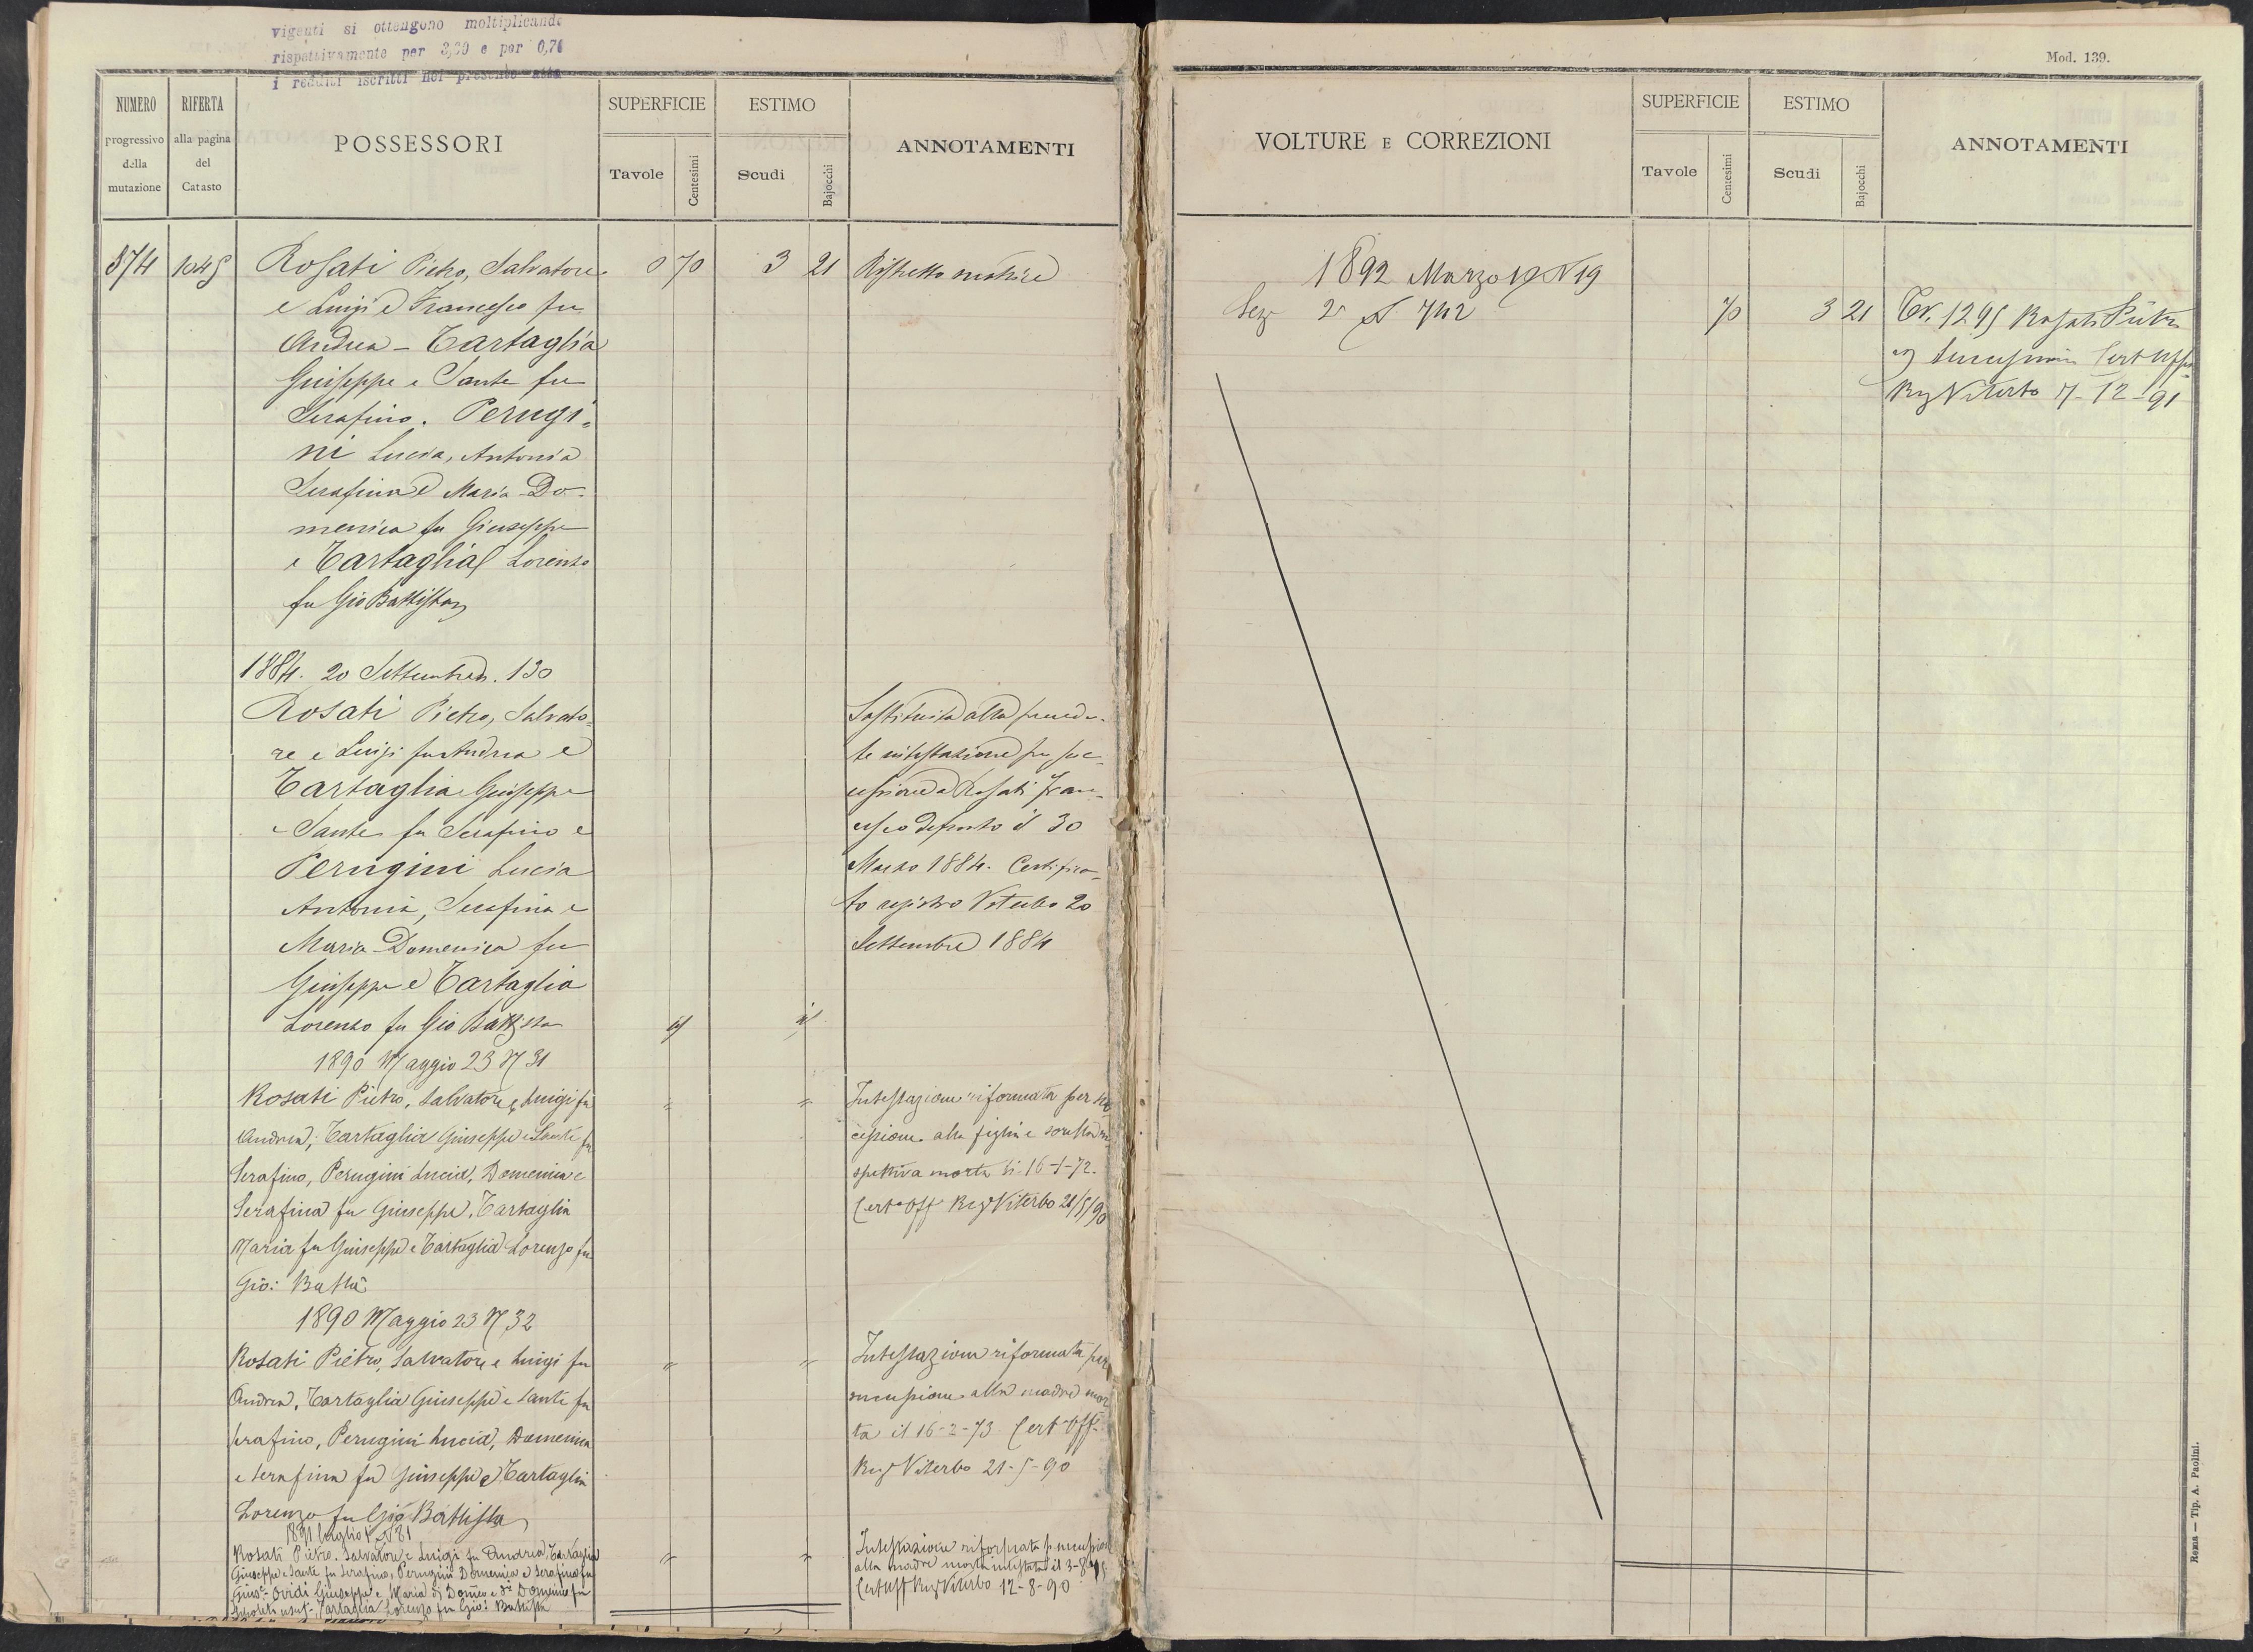 vigenti si ottengono moltiplicando
rispettivamente per 3,20 e per 0,76
i redditi iscritti nel presente atto
NUMERO
progressivo
della
mutazione
RIFERTA
alla pagina
del
Catasto
POSSESSORI
SUPERFICIE
Tavole
Centesimi
ESTIMO
Scudi
Bajocchi
ANNOTAMENTI
874 1045 Rosati Pietro, Salvatore 0 70 3 21 Rispetto matrice
e Luigi e Francesco fu
Andrea - Tartaglia
Giuseppe e Sante fu
Serafino. Perugi=
ni Lucia, Antonia
Serafina e Maria Do-
menica fu Giuseppe
e Tartaglia Lorenzo
fu Gio Battista
1884. 20 Settembre n. 130
Rosati Pietro, Salvato=
re e Luigi fu Andrea e
Tartaglia Giuseppe
e Sante fu Serafino e
Perugini Lucia
Antonia, Serafina e
Maria Domenica fu
Giuseppe e Tartaglia
Lorenzo fu Gio Battista
Sostituita alla preceden-
te intestazione per suc-
cessione a Rosati Fran-
cesco defunto il 30
Marzo 1884. Certifica-
to registro Viterbo 20
Settembre 1884
1890 Maggio 23 N 31
Rosati Pietro, Salvatore e Luigi fu
Andrea, Tartaglia Giuseppe e Sante fu
Serafino, Perugini Lucia, Domenica e
Serafina fu Giuseppe, Tartaglia
Maria fu Giuseppe e Tartaglia Lorenzo fu
Gio: Batta
Intestazione riformata per suc
cessione alla figlia e sorella ri
spettiva morta li 16-1-72.
Cert° Off Reg° Viterbo 21/5/90
1890 Maggio 23 N 32
Rosati Pietro, Salvatore e Luigi fu
Andrea, Tartaglia Giuseppe e Sante fu
Serafino, Perugini Lucia, Domenica
e Serafina fu Giuseppe e Tartaglia
Lorenzo fu Gio Battista
Intestazione riformata per
successione alla madre mor
ta il 16-2-73 Cert° Off°
Reg° Viterbo 21-5-90
1891 luglio N 81
Rosati Pietro, Salvatore e Luigi fu Andrea, Tartaglia
Giuseppe e Sante fu Serafino, Perugini Domenica e Serafina fu
Gius°- Ovidi Giuseppe e Maria di Dom°co e d° Domenico fu
usuf°- Tartaglia Lorenzo fu Gio: Battista
Intestazione riformata p successione
alla madre morta intestata il 3-8-
Cert Uff Reg Viterbo 12-8-90
Mod. 139.
VOLTURE E CORREZIONI
SUPERFICIE
Tavole
Centesimi
ESTIMO
Scudi
Bajocchi
ANNOTAMENTI
1892 Marzo 19 N 19
Sez 2a N. 742 70 3 21 Tr. 1295 Rosati Pietro
Successione Cert Uff°
Reg Viterbo 7-12-91
Roma — Tip. A. Paolini.